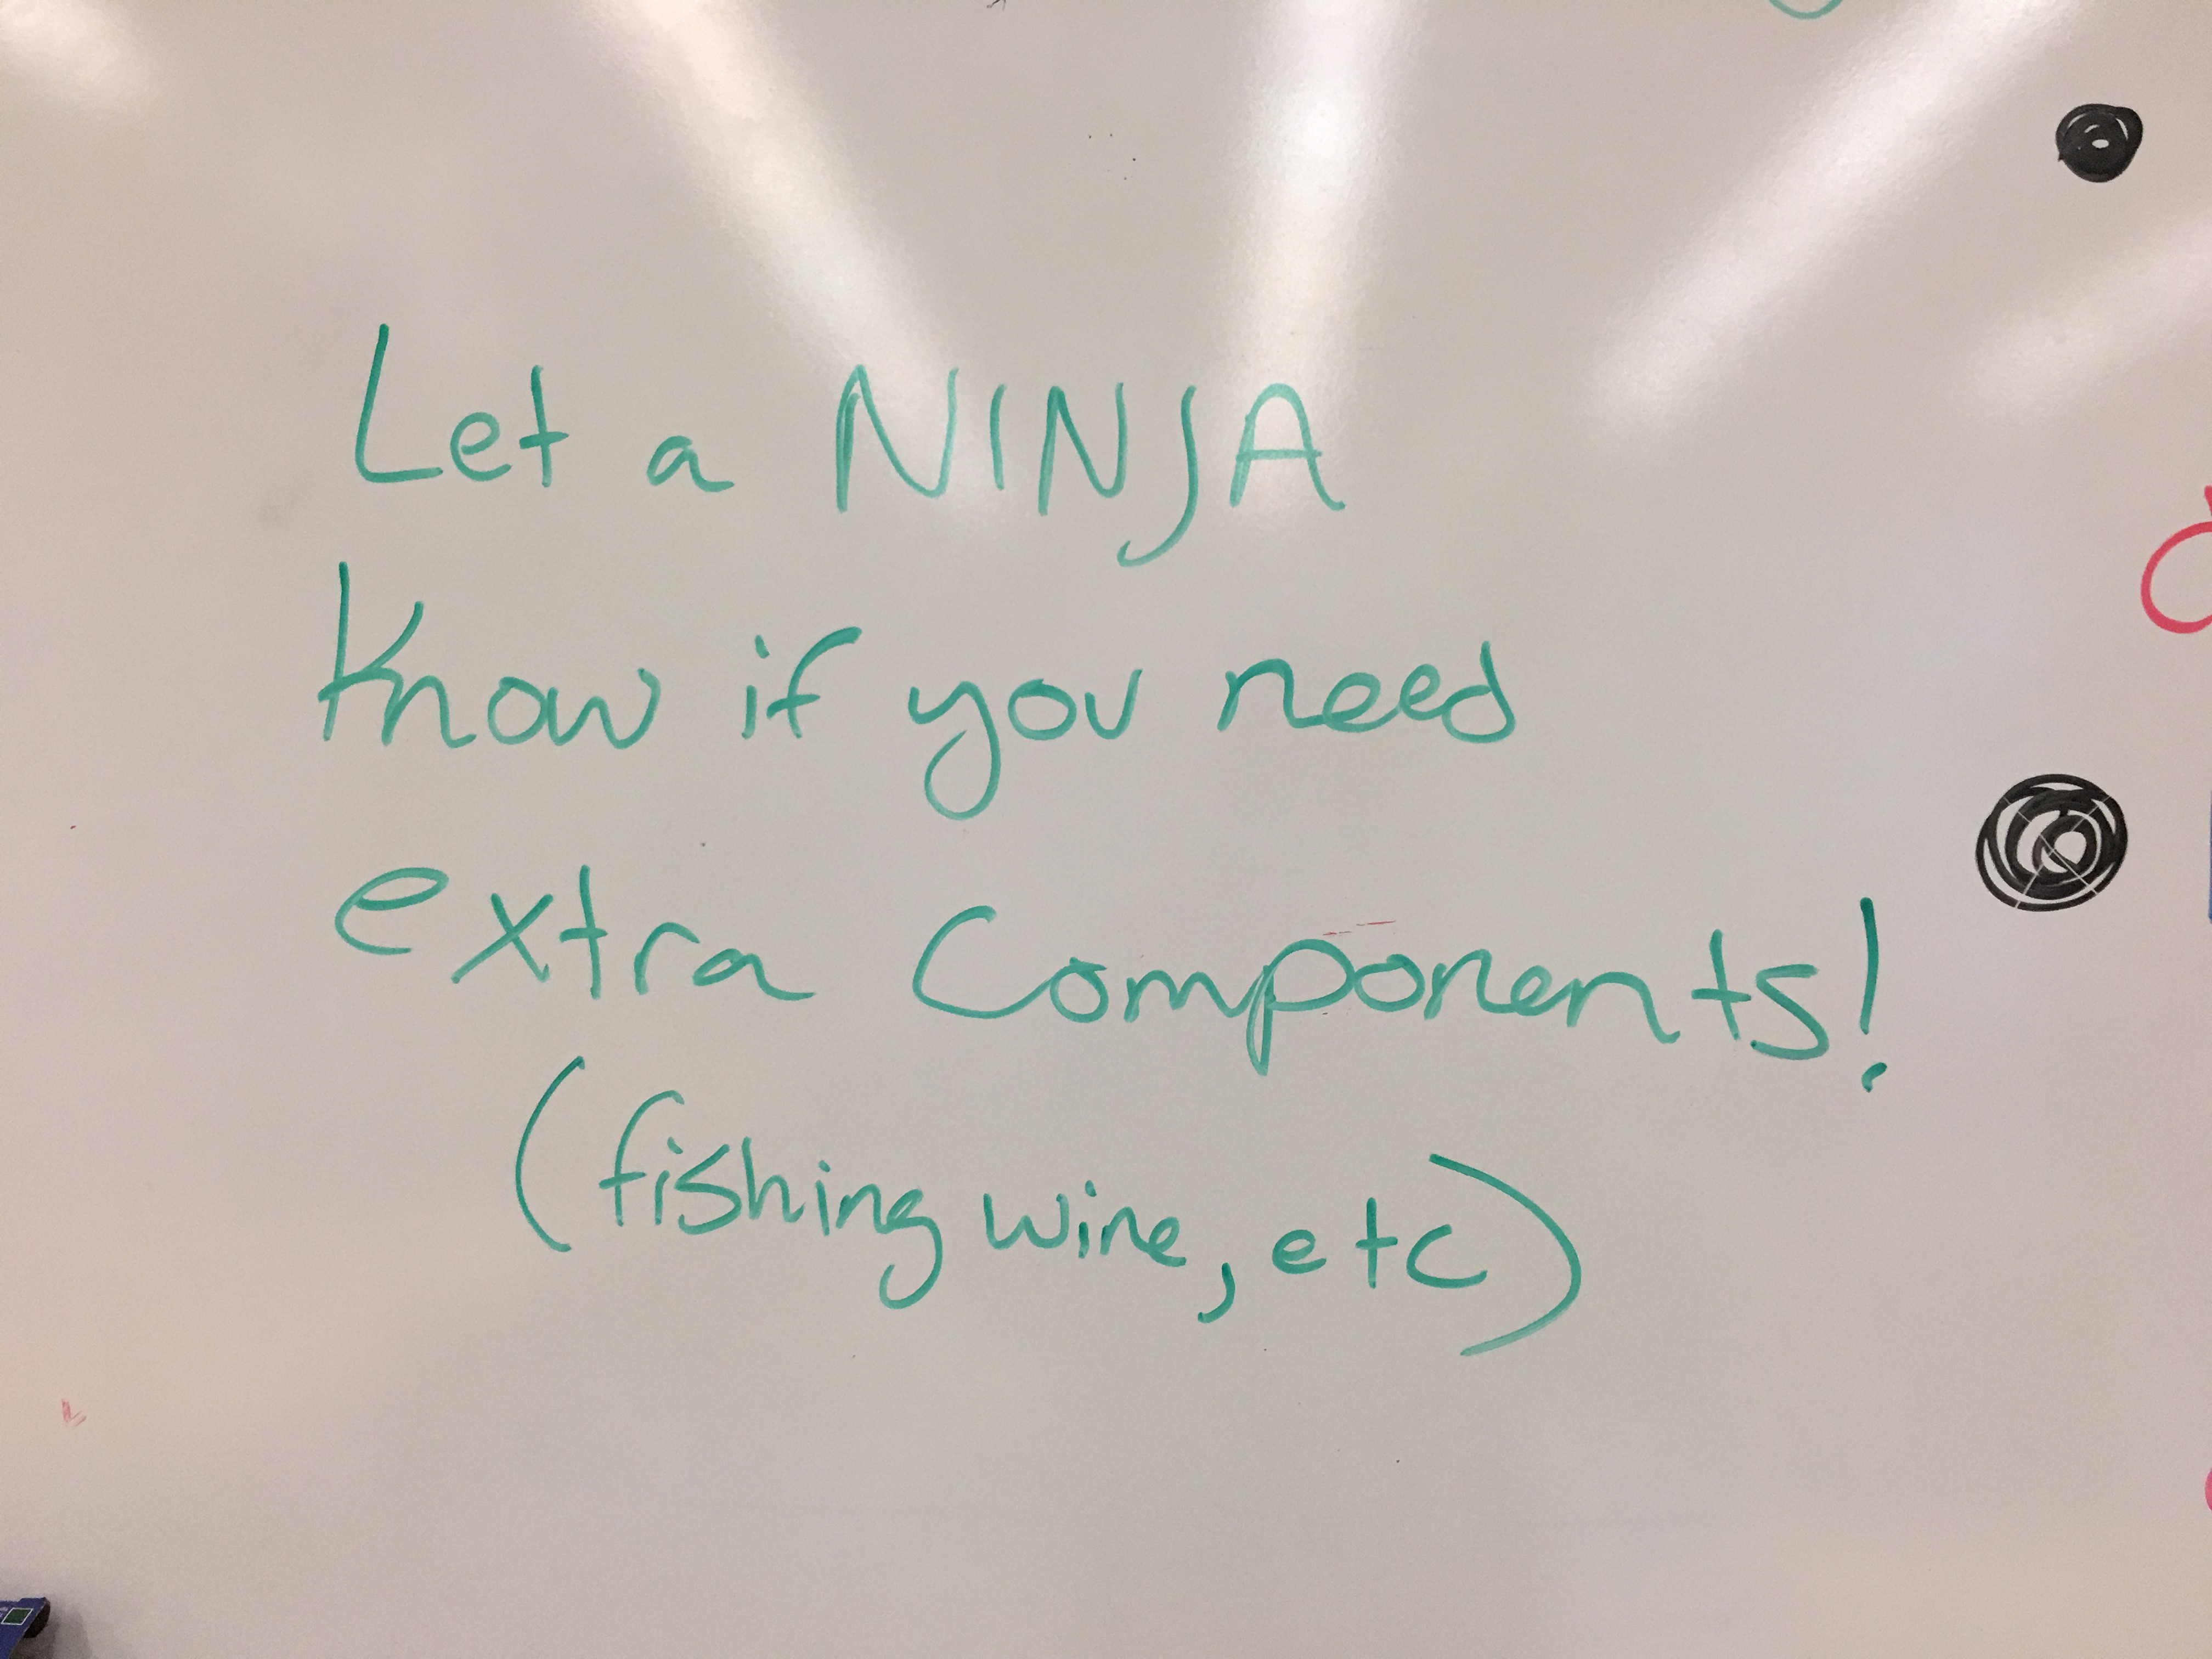 Let a NINJA
know if you need
extra components!
(fishing wine, etc)